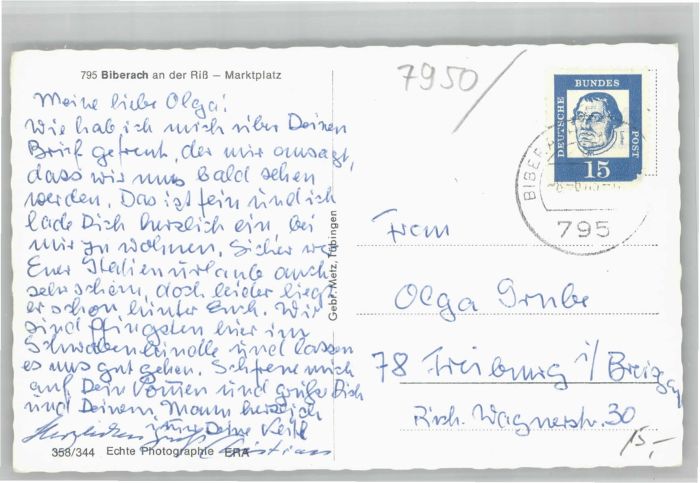 795 Biberach an der Riß – Marktplatz
Meine liebe Olga!
Wie hab ich mich über Deinen
Brief gefreut, der mir ansagt,
dass wir uns bald sehen
werden. Das ist fein und ich
lade Dich herzlich ein bei
mir zu wohnen. Sicher war
Euer Italienurlaub auch
sehr schön, doch leider liegt
er schon hinter Euch. Wir
sind Pfingsten hier im
und lassen
es uns gut gehen. Ich freue mich
auf Dein Kommen und grüße Dich
und Deinem Mann herzlich
Deine
Herzlichen Gruß Christian
358/344 Echte Photographie ERA
Gebr. Metz, Tübingen
7950/
DEUTSCHE BUNDES POST
15
BIBER
795
Frau
Olga Grube
78 Freiburg i/Breisg
Rich. Wagnerstr. 30
15,-